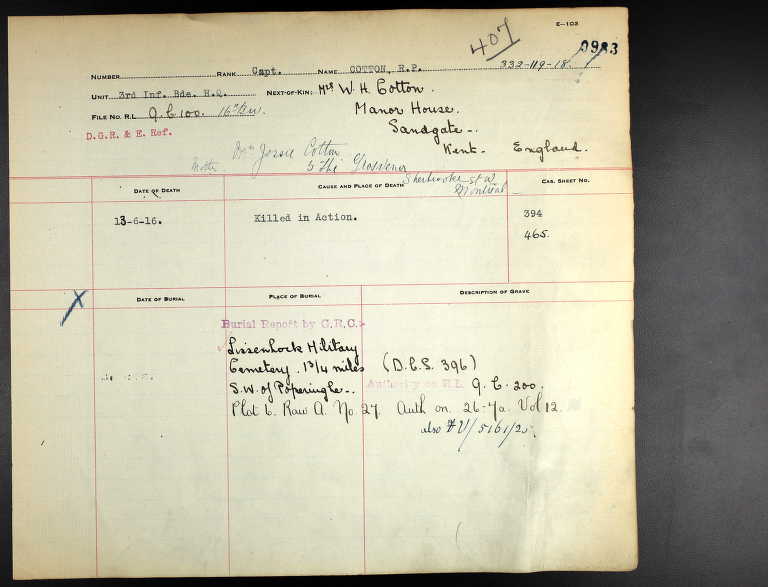 E—103
407
0983
NUMBER RANK Capt. NAME COTTON, R.P. 332-119-18.
UNIT 3rd Inf. Bde. H.Q. NEXT-OF-KIN: Mrs W. H. Cotton.
FILE NO. R.L. Q.C. 100. Manor House.
D.G.R. & E. Ref. Sandgate -.
Kent. England.
Mother Jessie Cotton
5 The Grosvenor
Sherbrooke St W
Montreal
DATE OF DEATH CAUSE AND PLACE OF DEATH CAS. SHEET NO.
13-6-16. Killed in Action. 394
465.
X
DATE OF BURIAL PLACE OF BURIAL DESCRIPTION OF GRAVE
Burial Report by G.R.C.
Lissenhock Military
Cemetery. 1 3/4 miles (D.C.S. 396)
S.W. of Poperinghe -. Authority on R.L. Q. C. 200.
Plot 6. Row A. No. 27. Auth on. 26-7a. Vol 12.
also V/5161/25.